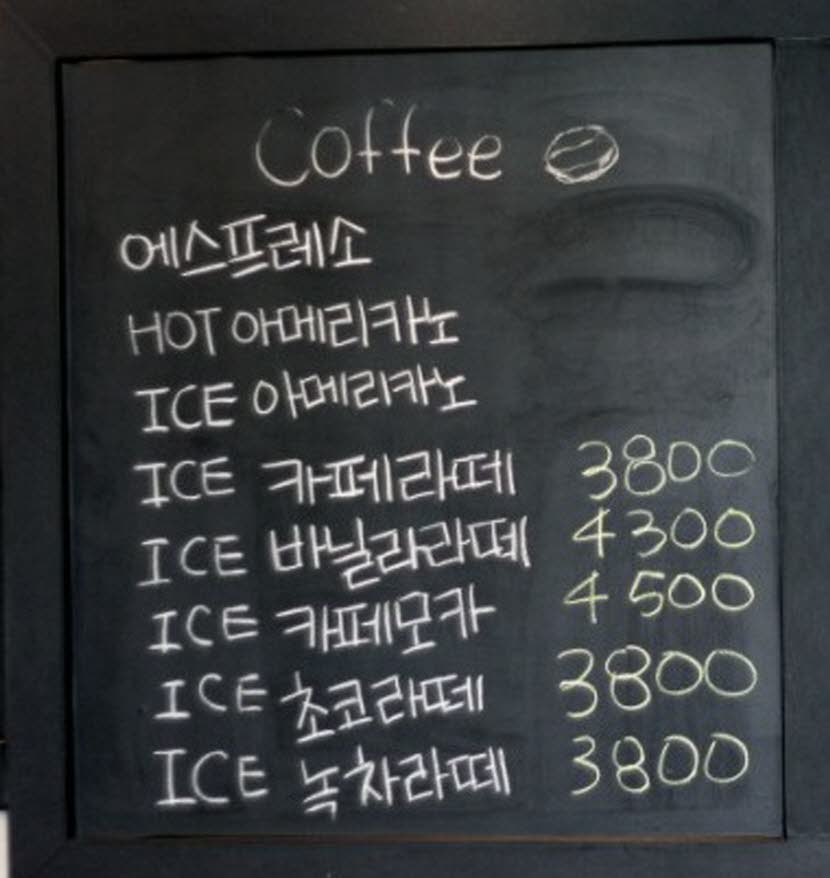 Coffee
에스프레소
HOT 아메리카노
ICE 아메리카노
ICE 카페라떼 3800
ICE 바닐라라떼 4300
ICE 카페모카 4500
ICE 초코라떼 3800
ICE 녹차라떼 3800